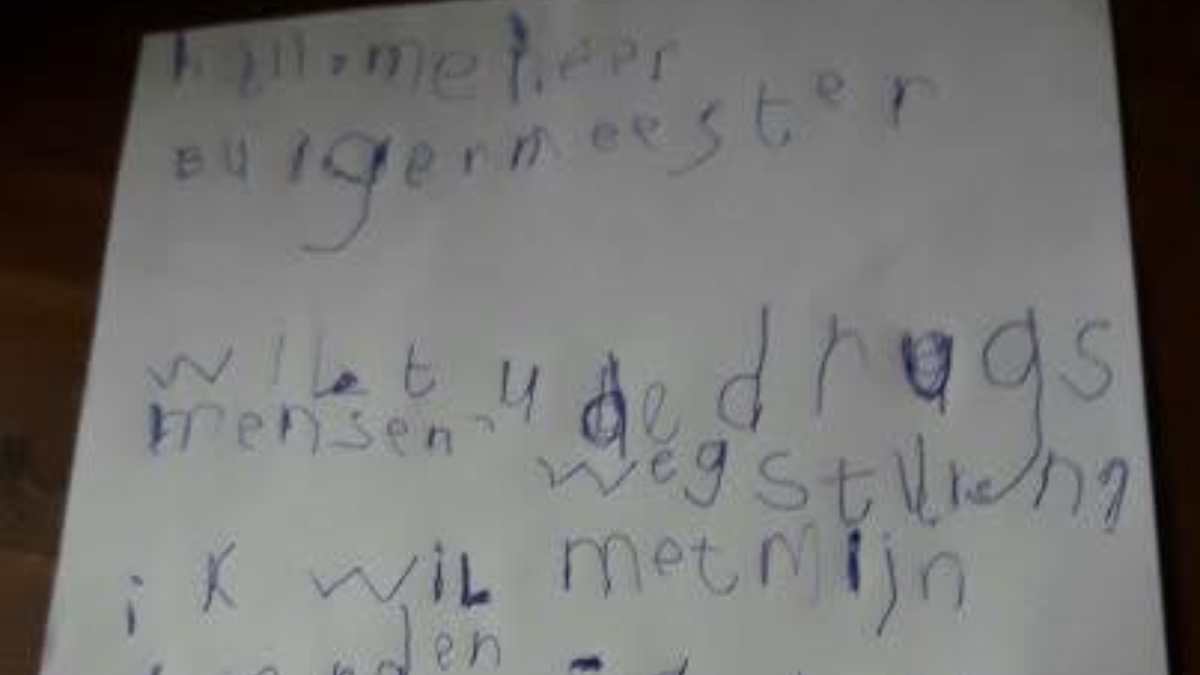 hallo meheer
Burgermeester
wilt u de drugs
mensen wegsturen?
ik wil met mijn